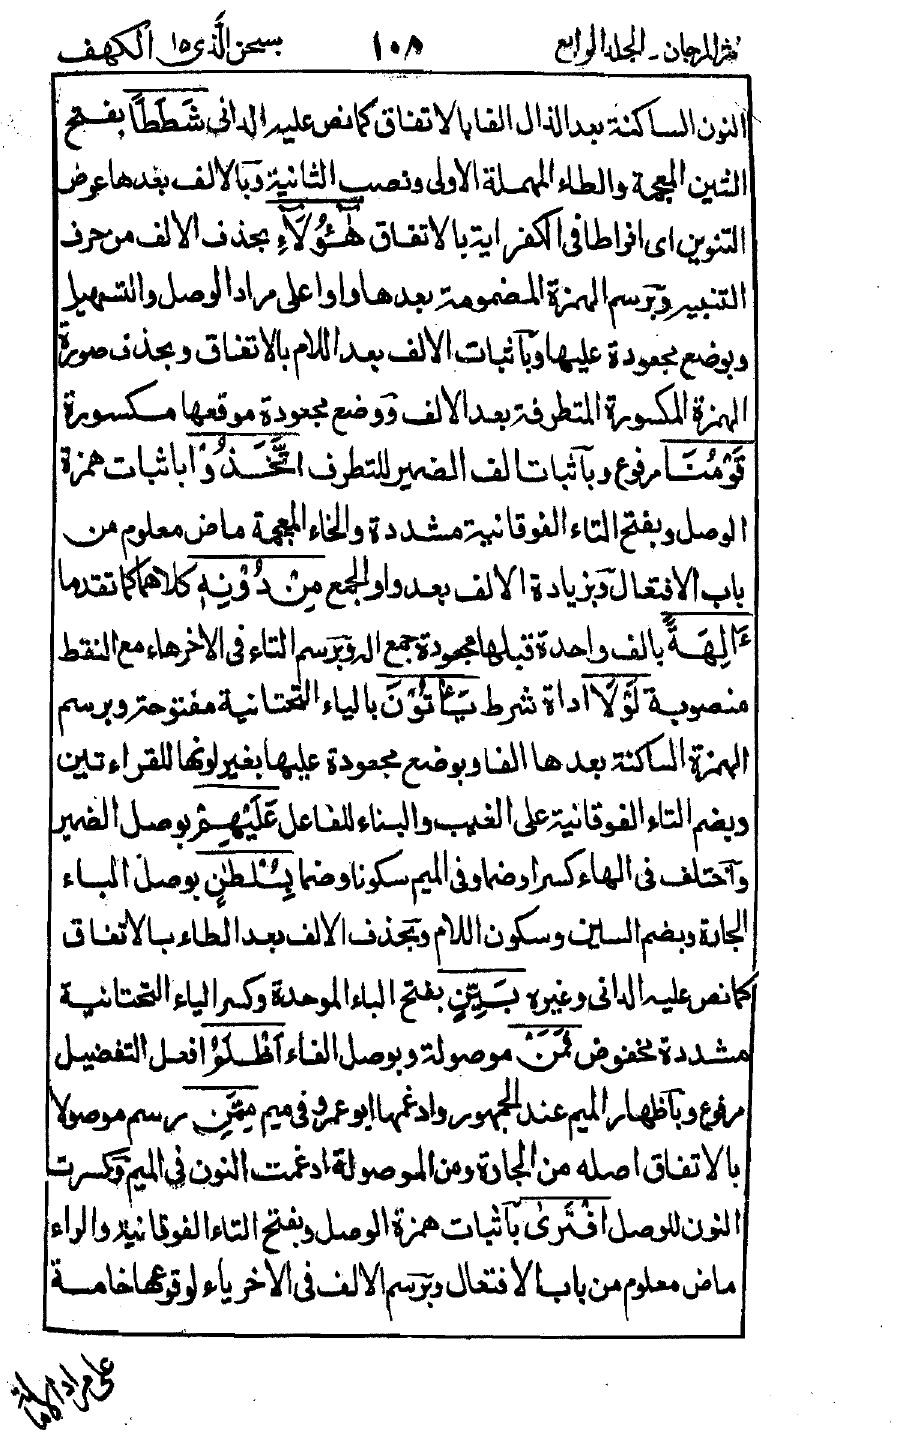 نثر المرجان - المجلد الرابع ١٠٨ سبحن الذى ١٥ الكهف
النون الساكنة بعد الذال الفا بالاتفاق كما نص عليه الدانى شَطَطًا بفتح
الشين المعجمة والطاء المهملة الاولى ونصب الثانية وبالالف بعدها عوض
التنوين اى افراطا فى الكفر اية بالاتفاق هٰٓؤُلَآءِ بحذف الالف من حرف
التنبيه وبرسم الهمزة المضمومة بعدها واوا على مراد الوصل والتسهيل
وبوضع مجعودة عليها وبآثبات الالف بعد اللام بالاتفاق وبحذف صورة
الهمزة المكسورة المتطرفة بعد الالف ووضع مجعودة موقعها مكسورة
قَوْمُنَا مرفوع وبآثبات الف الضمير للتطرف اتَّخَذُوْا باثبات همزة
الوصل وبفتح التاء الفوقانية مشددة والخاء المعجمة ماض معلوم من
باب الافتعال وبزيادة الالف بعد واو الجمع مِنْ دُوْنِهٖ كلاهما كما تقدما
ءَالِهَةً بالف واحدة قبلها مجعودة جمع اله وبرسم التاء فى الاخر هاء مع النقط
منصوبة لَوْلَا اداة شرط يَأْتُوْنَ بالياء التحتانية مفتوحة وبرسم
الهمزة الساكنة بعدها الفا وبوضع مجعودة عليها بغير لونها للقراءتين
وبضم التاء الفوقانية على الغيب والبناء للفاعل عَلَيْهِمْ بوصل الضمير
وآختلف فى الهاء كسرا وضما وفى الميم سكونا وضما بِسُلْطٰنٍ بوصل الباء
الجارة وبضم السين وسكون اللام وبحذف الالف بعد الطاء بالاتفاق
كما نص عليه الدانى وغيره بَيِّنٍ بفتح الباء الموحدة وكسر الياء التحتانية
مشددة مخفوض فَمَنْ موصولة وبوصل الفاء اَظْلَمُ افعل التفضيل
مرفوع وبآظهار الميم عند الجمهور وادغمها ابو عمرو فى ميم مِمَّنِ رسم موصولا
بالاتفاق اصله من الجارة ومن الموصولة ادغمت النون فى الميم وكسرت
النون للوصل افْتَرٰى بآثبات همزة الوصل وبفتح التاء الفوقانية والراء
ماض معلوم من باب الافتعال وبرسم الالف فى الاخر ياء لوقوعها خامسة
على مراد الامالة